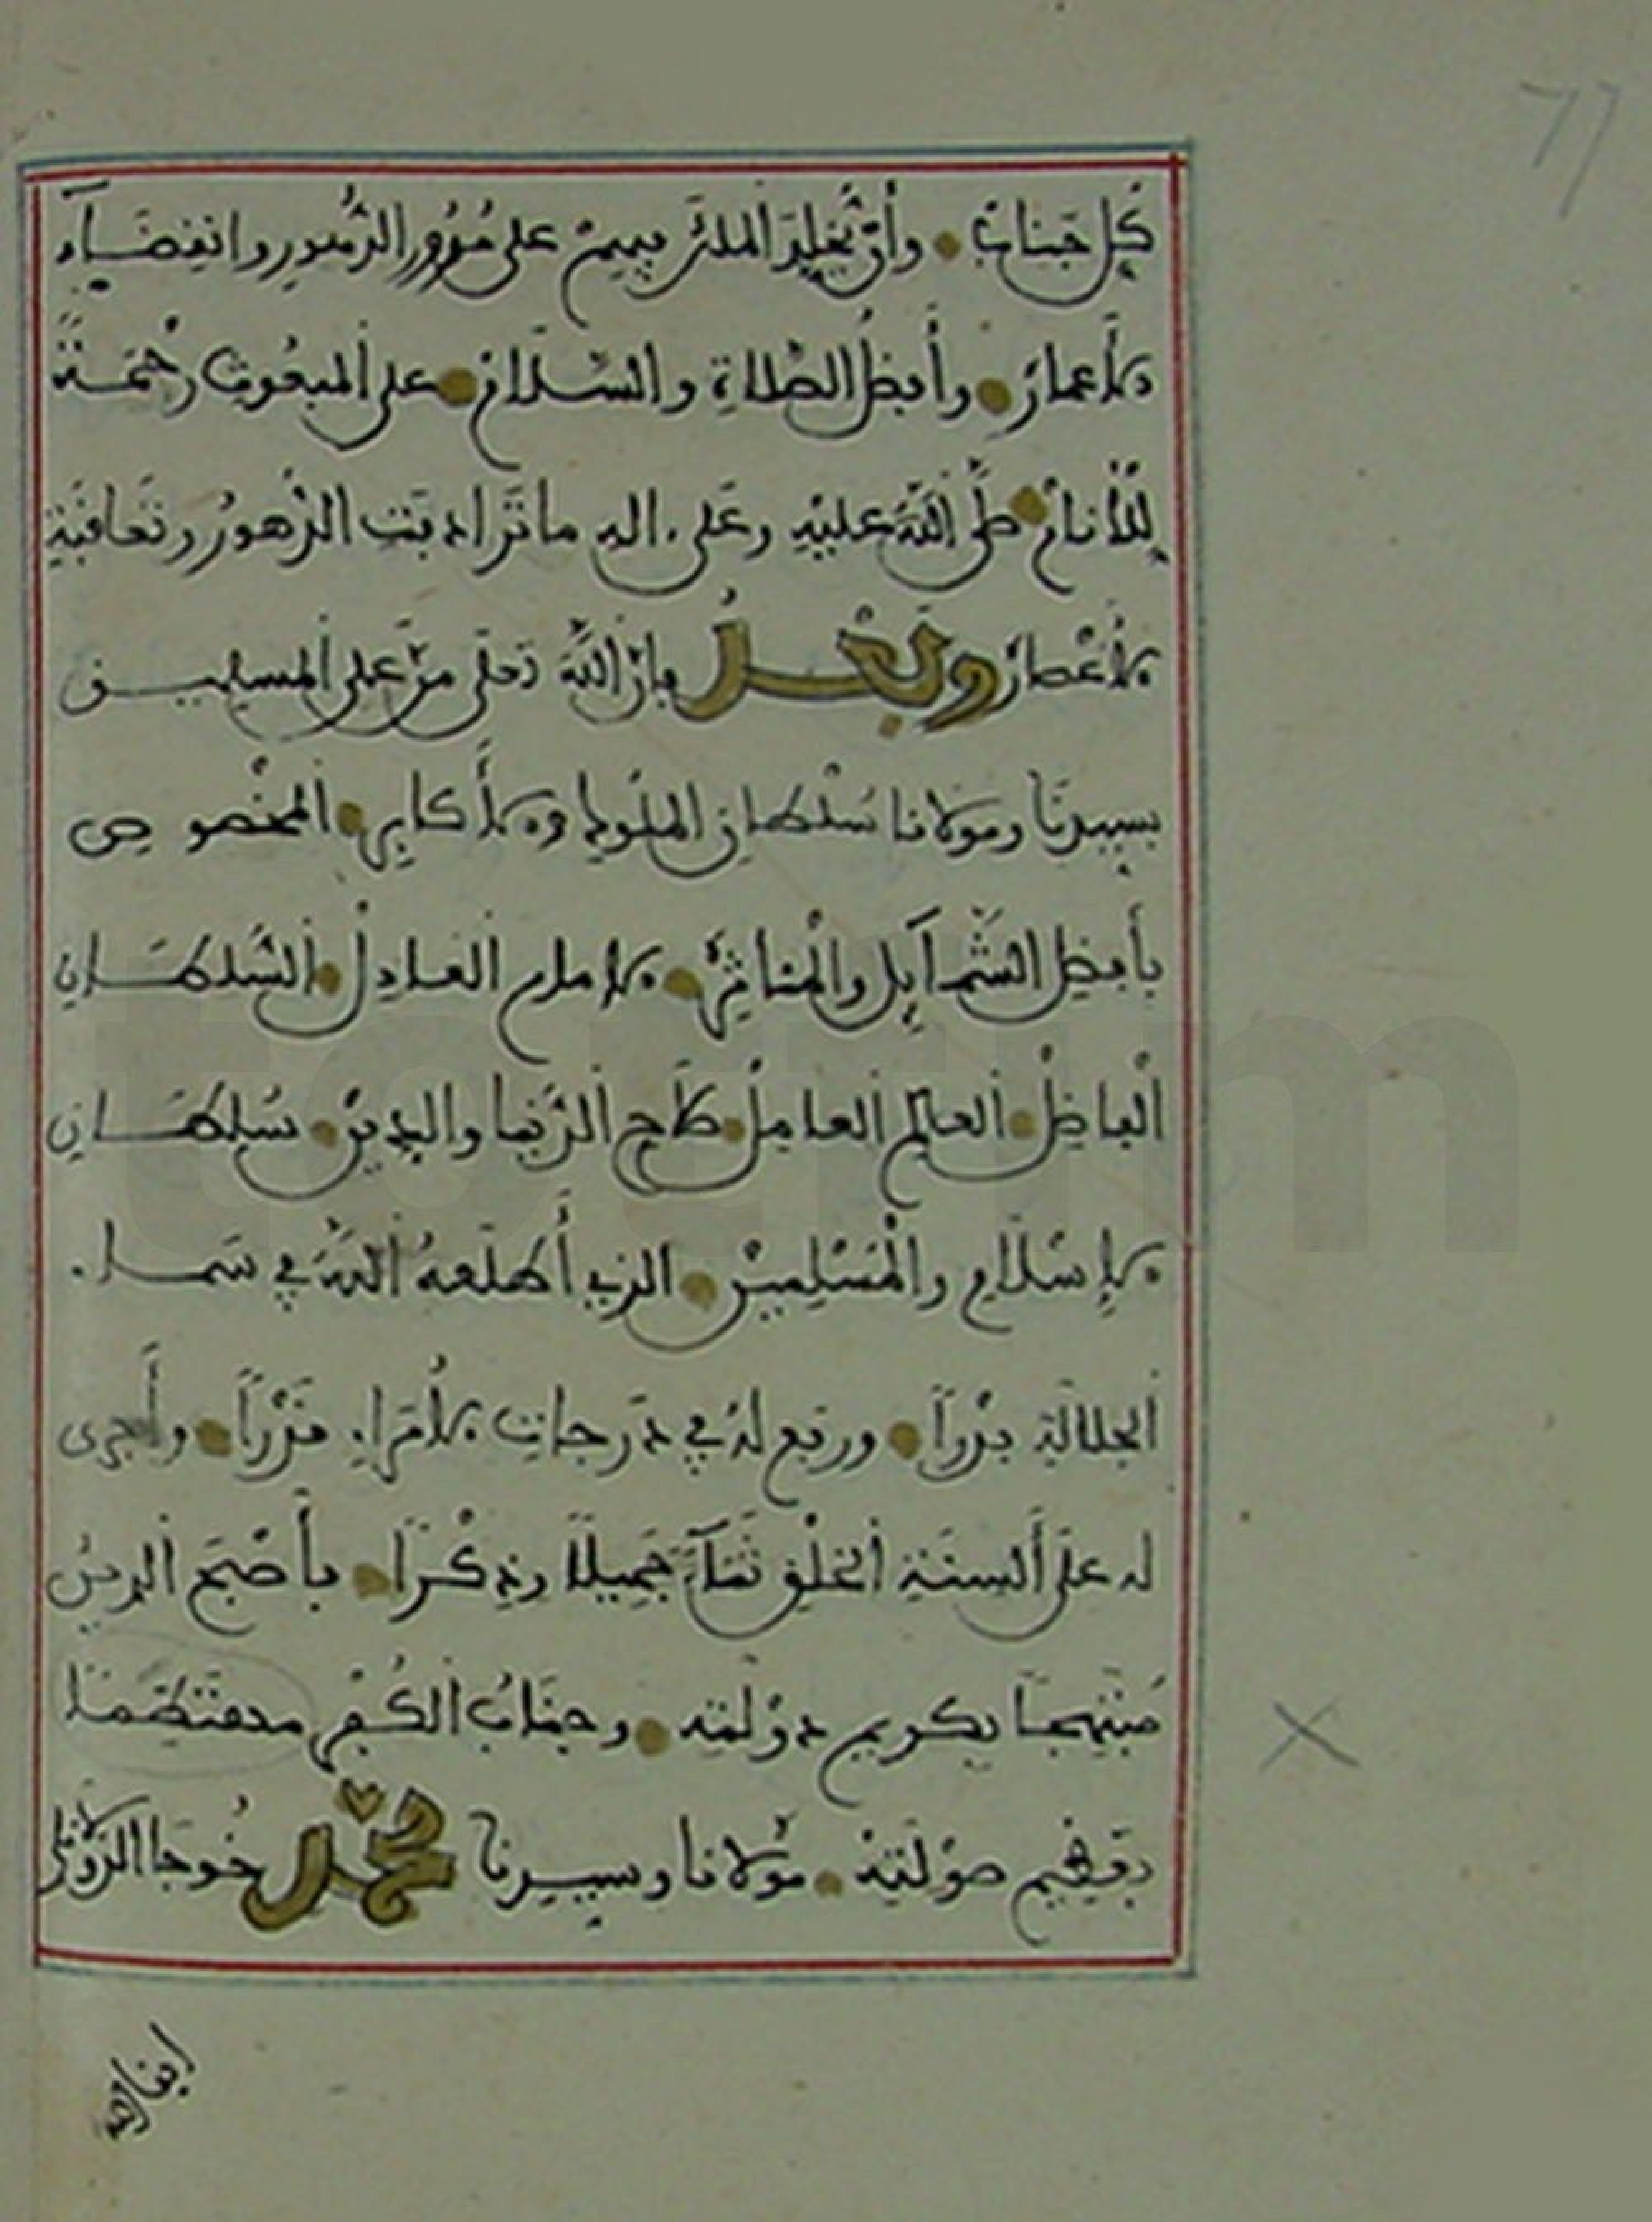 كُلِ جَنَابٍ وأن تخلد الملك فيمن على مُرُورِ الدُّهورِ وانقِضَآءِ
الأعمارْ وأفضلُ الصَّلاةِ والسَّلامْ على المبعُوثِ رَحْمَةً
لِلأنامْ صلَّى اللهُ عليْهِ وعَلى ءالهِ ما تَرَادفَتِ الزُّهورُ وتعاقبَتِ
الأعْصارْ وبَعْــدُ فإنّ اللهَ تعلى منَّ على المسلميــن
بسيدِنَا ومَوْلانا سُلْطانِ المُلُوكِ والأكابِرِ المخْصوصِ
بأفضلِ الشَّمآيِلِ والْمئاثِرْ الإمامِ العادِلْ السُّلطَــانِ
الْفاضِلْ العالِمِ العامِلْ صَلاَحِ الدُّنْيا والدِينْ سُلطَــانِ
الإِسْلَامِ والْمُسْلِمِينْ الذي أَطْلَعهُ اللهُ في سَمــاء
الجلالَةِ بَدْرَاً ورفع لهُ في دَرجاتِ الأُمَراءِ قَدْرَاً وأَجرى
له على أَلسِنَةِ الخلْقِ ثَنَآءً جَمِيلاً وذِكْرَاً فأصْبَحَ الدينُ
مُبْتَهِجَاً بكريمِ دوْلَتِه وجَنَابُ الكُفْرِ
بِعَظِيمِ صَوْلَتِهْ مَوْلانا وسيــدِنا مُحَمَّد خُوجا الدَّوْلاتلي
ابن